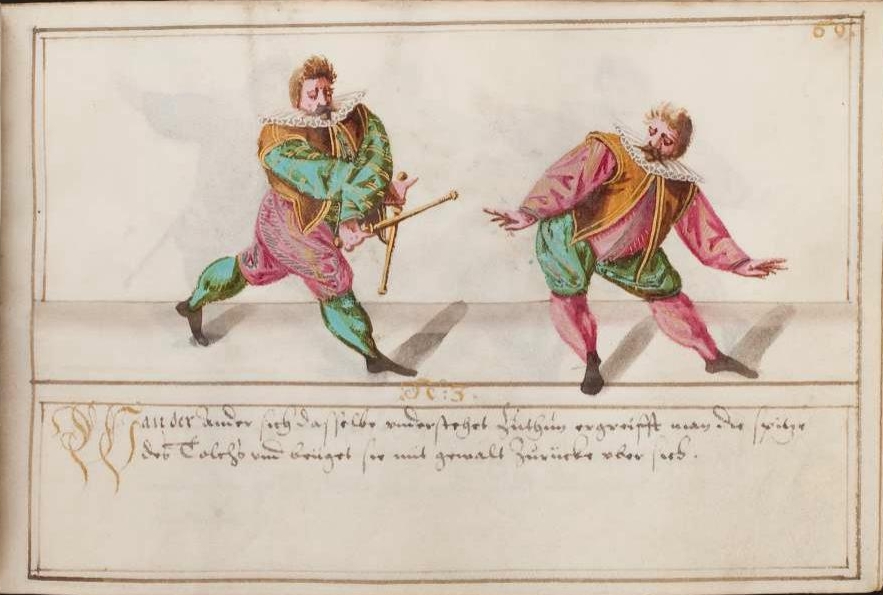 69.
N: 3.
Wan der Ander sich dasselbe vnderstehet Zuthun ergreifft man die spitze
des Tolchs vnd beuget sie mit gewalt Zurücke vber sich.